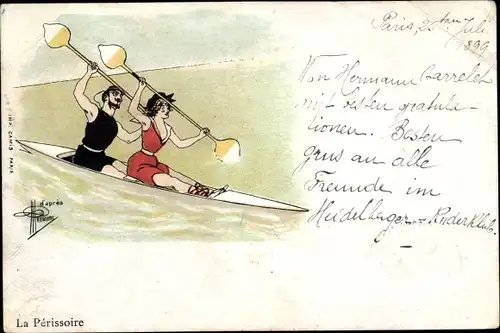 Paris, 25ten Juli
899
Von Hermann Barrelet
mit besten gratula-
tionen. Besten
grus an alle
Freunde im
Heidelberger Ruderklub.
IMP. CAMIS PARIS
d'après
La Périssoire